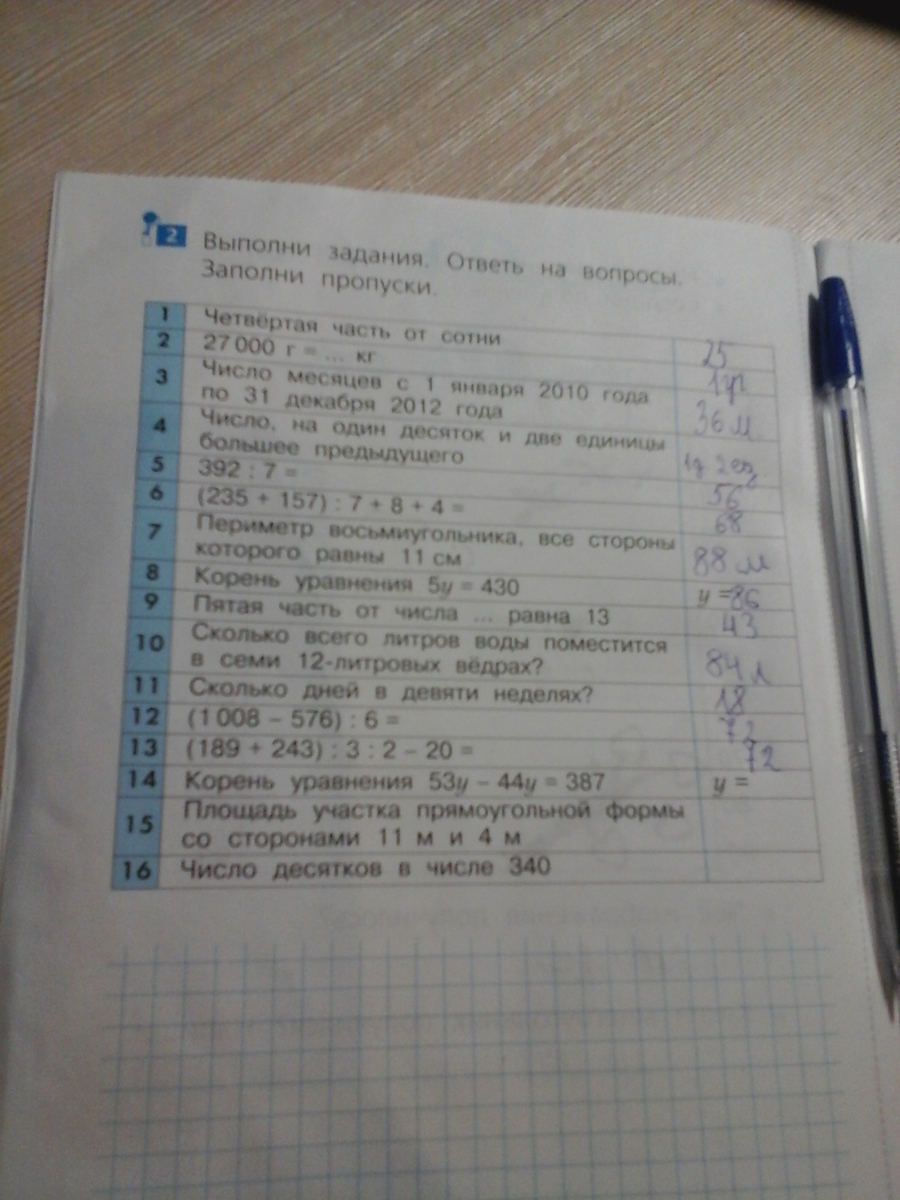 2 Выполни задания. Ответь на вопросы.
Заполни пропуски.
1 Четвёртая часть от сотни 25
2 27 000 г = ... кг
3 Число месяцев с 1 января 2010 года
по 31 декабря 2012 года 36 м.
4 Число, на один десяток и две единицы
большее предыдущего 1д 2ед.
5 392 : 7 = 56
6 (235 + 157) : 7 + 8 + 4 = 68
7 Периметр восьмиугольника, все стороны
которого равны 11 см 88 м
8 Корень уравнения 5y = 430 y = 86
9 Пятая часть от числа ... равна 13 43
10 Сколько всего литров воды поместится
в семи 12-литровых вёдрах? 84 л
11 Сколько дней в девяти неделях? 18
12 (1 008 – 576) : 6 = 72
13 (189 + 243) : 3 : 2 – 20 = 72
14 Корень уравнения 53y – 44y = 387 y =
15 Площадь участка прямоугольной формы
со сторонами 11 м и 4 м
16 Число десятков в числе 340